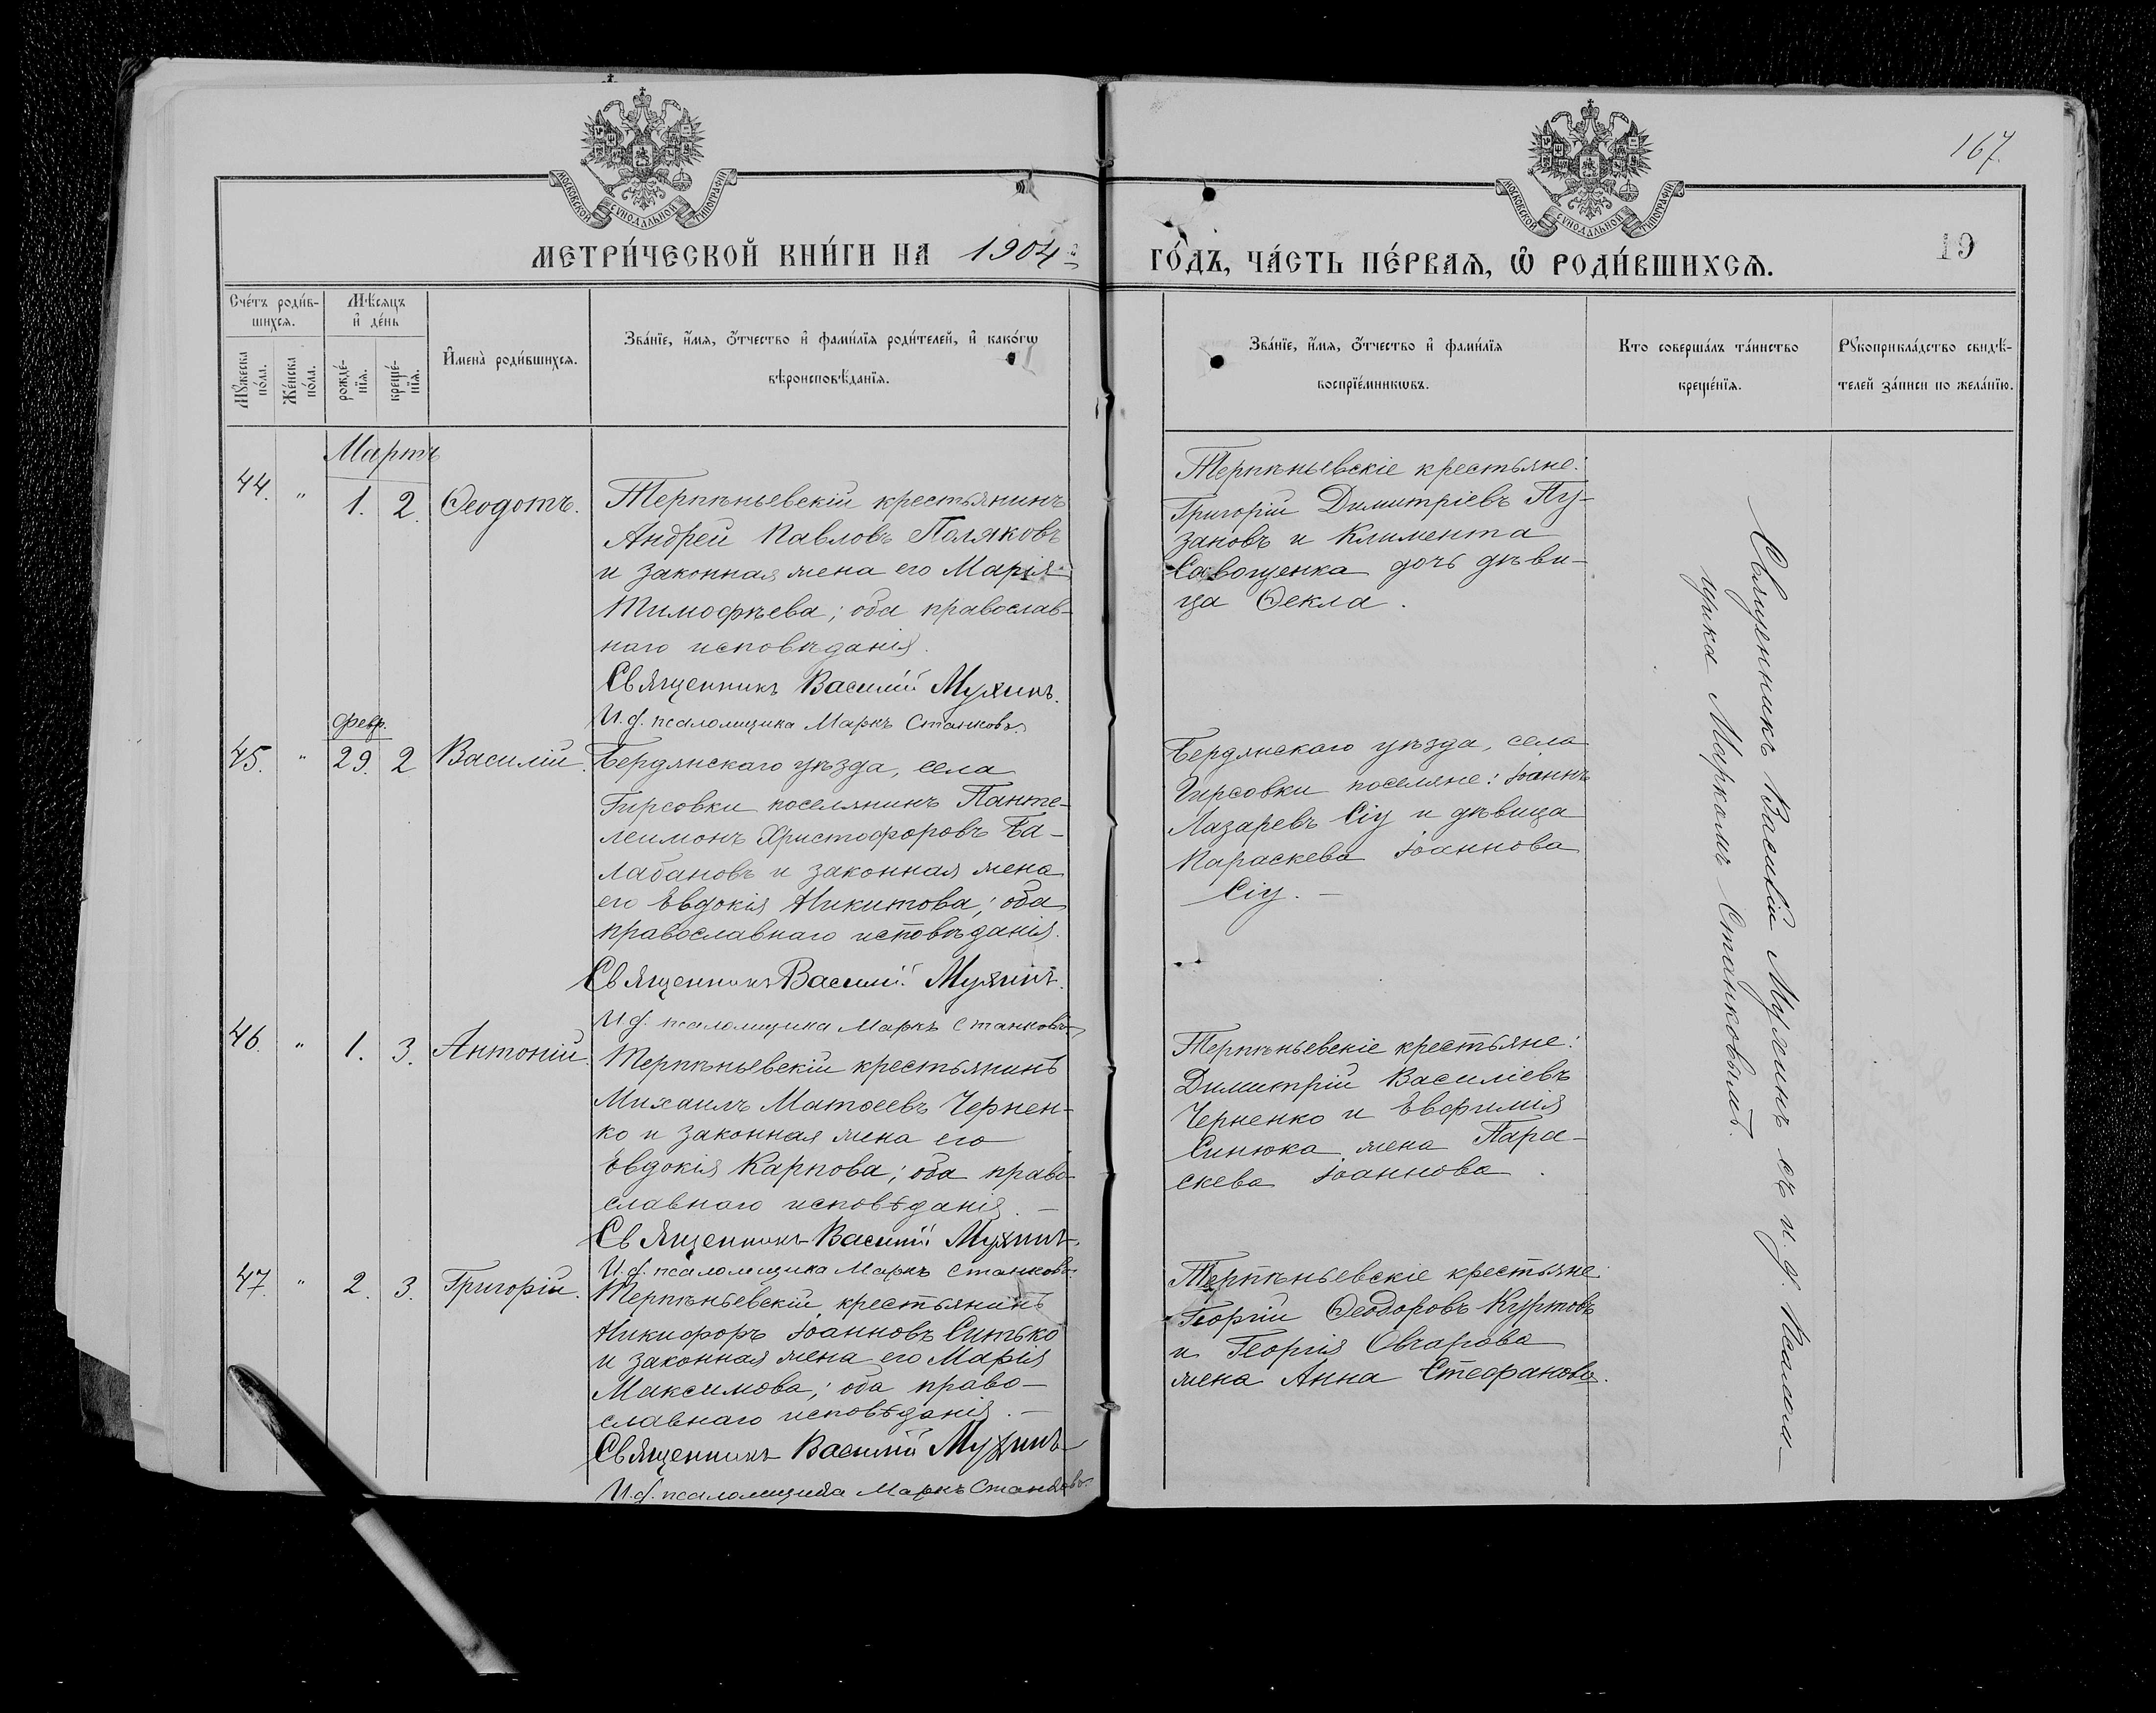 167.
МОСКОВСКОЙ СѴНОДАЛЬНОЙ ТИПОГРАФІИ
МОСКОВСКОЙ СѴНОДАЛЬНОЙ ТИПОГРАФІИ
МЕТРИ́ЧЕСКОЙ КНИ́ГИ НА 1904й
ГО́ДЪ, ЧА́СТЬ ПЕ́РВАѦ, Ѽ РОДИ́ВШИХСѦ.
19
Сче́тъ роди́в-
шихся.
Мѣ́сяцъ
и҆ де́нь
Мꙋ́жеска
по́ла.
Же́нска
по́ла.
рожде́-
нїя.
креще́-
нїя.
И҆мена̀ роди́вшихся.
Зва́нїе, и҆́мя, ѻ҆́тчество и҆ фами́лїя роди́телей, и҆ како́гѡ
вѣроисповѣ́данїя.
Зва́нїе, и҆́мя, ѻ҆́тчество и҆ фами́лїя
воспрїе́мникѡвъ.
Кто соверша́лъ та́инство
креще́нїя.
Рꙋкоприкла́дство свидѣ́-
телей за́писи по жела́нїю.
Мартъ
44. " 1. 2. Ѳеодотъ.
Терпѣньевскій крестьянинъ
Андрей Павловъ Поляковъ
и законная жена его Марія
Тимофѣева; оба православ-
наго исповѣданія.
Священникъ Василій Мухинъ.
И.д. псаломщика Маркъ Станковъ.
Терпѣньевскіе крестьяне:
Григорій Димитріевъ Пу-
зановъ и Климента
Савощенка дочь дѣви-
ца Ѳекла.
Февр.
45. " 29. 2 Василій.
Бердянскаго уѣзда, села
Гирсовки поселянинъ Панте-
леимонъ Христофоровъ Ба-
лабановъ и законная жена
его Евдокія Никитова; оба
православнаго исповѣданія.
Священникъ Василій Мухинъ.
И.д. псаломщика Маркъ Станковъ.
Бердянскаго уѣзда, села
Гирсовки поселяне: Іоаннъ
Лазаревъ Сіу и дѣвица
Параскева Іоаннова
Сіу. —
46. " 1. 3. Антоній.
Терпѣньевскій крестьянинъ
Михаилъ Матѳеевъ Чернен-
ко и законная жена его
Евдокія Карпова; оба право-
славнаго исповѣданія. —
Священникъ Василій Мухинъ
И.д. псаломщика Маркъ Станковъ.
Терпѣньевскіе крестьяне:
Димитрій Василіевъ
Черненко и Евфимія
Синюка жена Пара-
скева Іоаннова.
47. " 2. 3. Григорій.
Терпѣньевскій крестьянинъ
Никифоръ Іоанновъ Ситько
и законная жена его Марія
Максимова; оба право-
славнаго исповѣданія. —
Священникъ Василій Мухинъ
И.д. псаломщика Маркъ Станковъ.
Терпѣньевскіе крестьяне:
Георгій Ѳеодоровъ Куртовъ
и Георгія Овчарова
жена Анна Стефанова.
Священникъ Василій Мухинъ съ и. д. псалом-
щика Маркомъ Станковымъ.